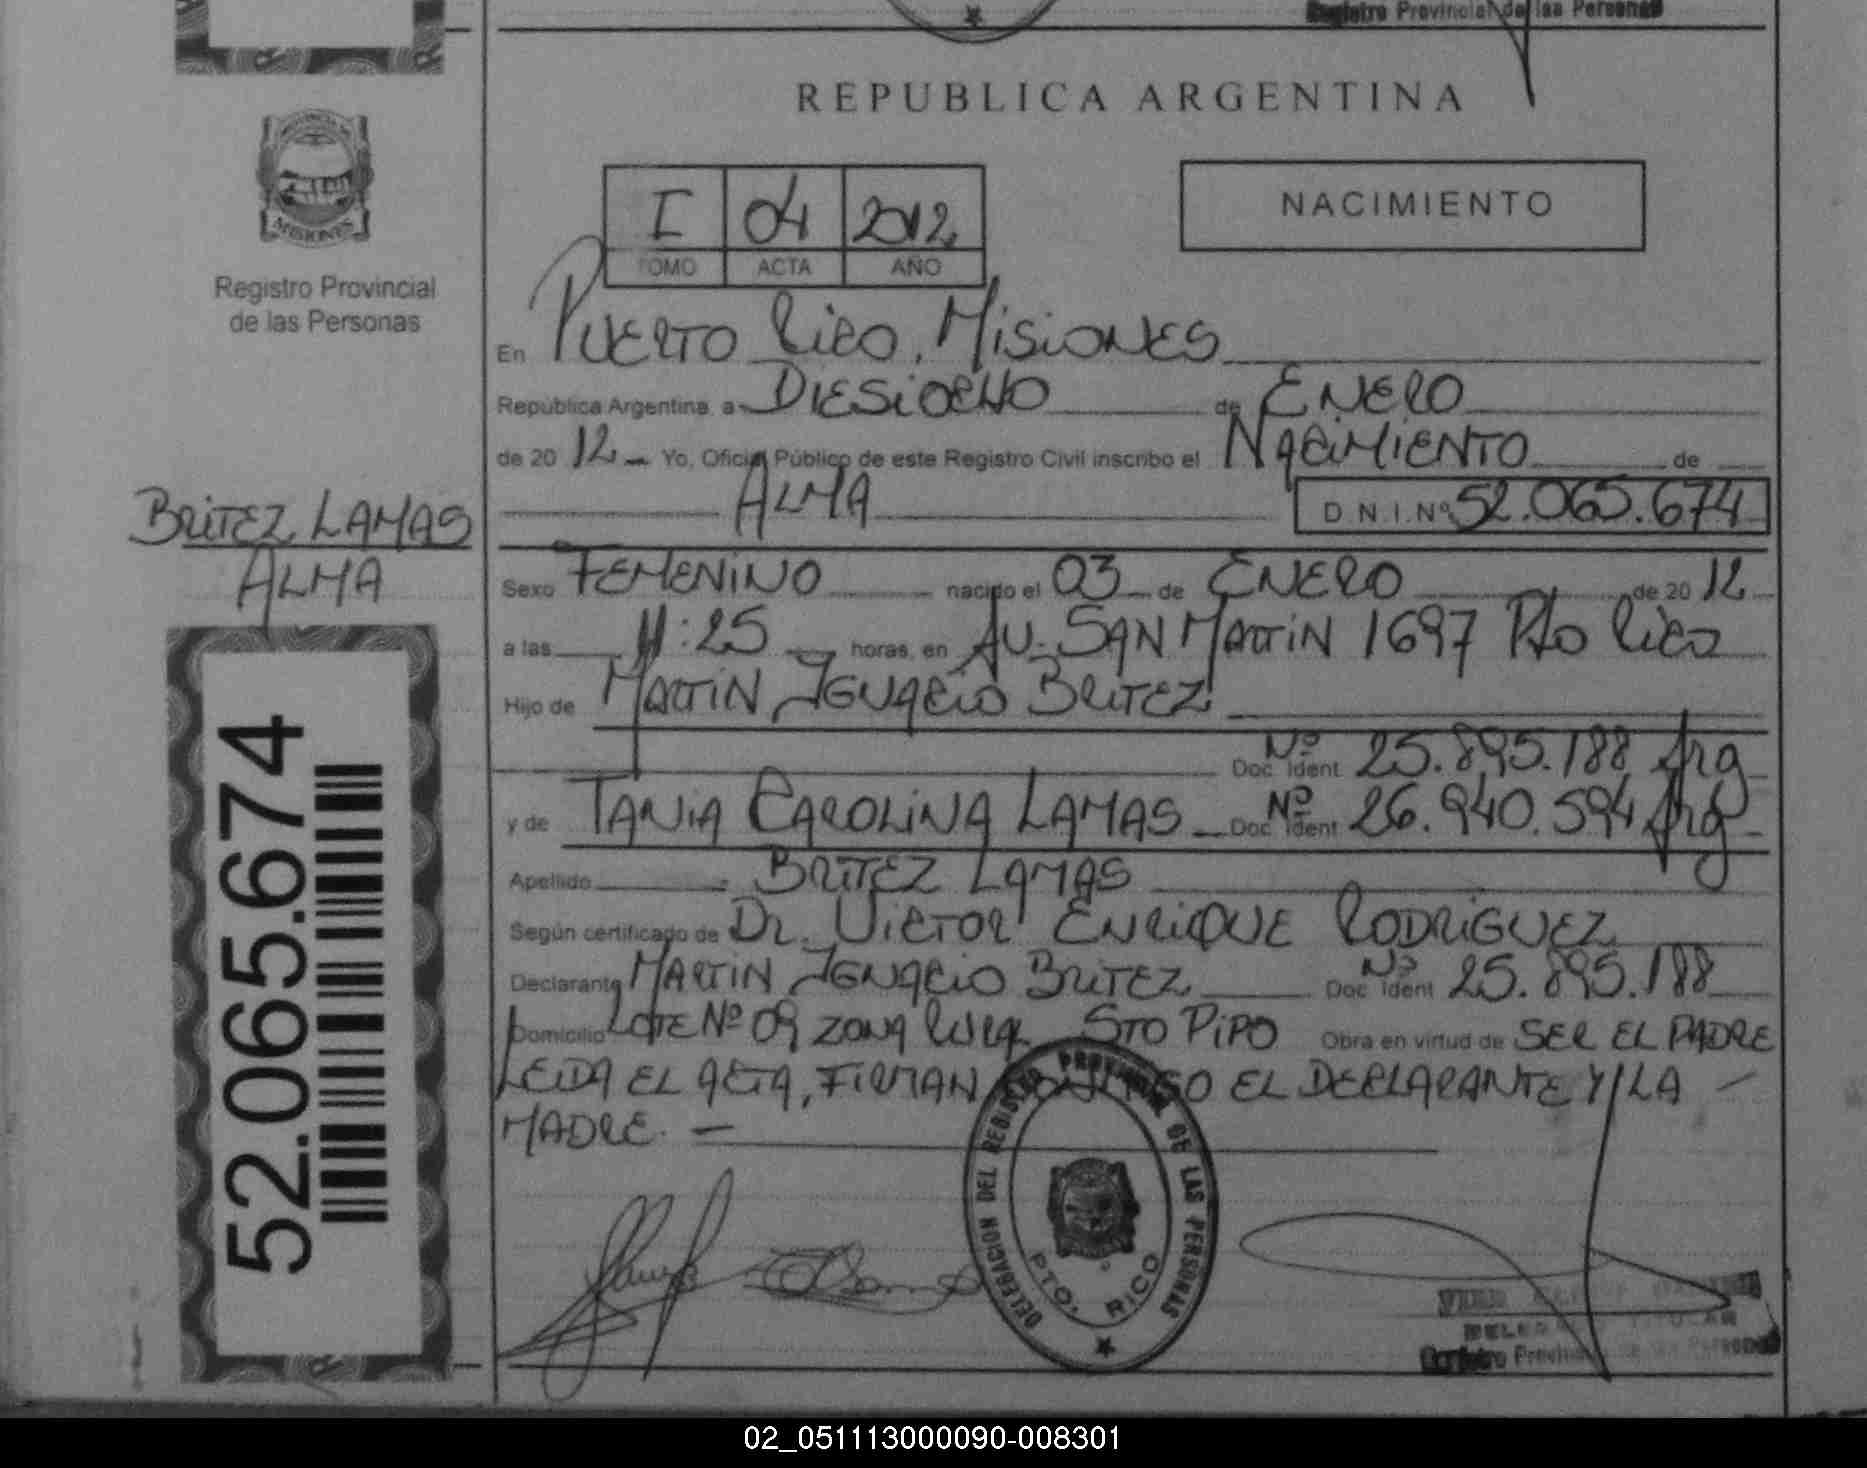 Registro Provincial de las Personas
REPUBLICA ARGENTINA
PROVINCIA DE
MISIONES
Registro Provincial
de las Personas
I 04 2012
TOMO ACTA AÑO
NACIMIENTO
En PUERTO RICO, MISIONES
República Argentina, a DIESIOCHO de ENERO
de 20 12 Yo, Oficial Público de este Registro Civil inscribo el NACIMIENTO de
ALMA D.N.I.Nº 52.065.674
BRITEZ LAMAS
ALMA
Sexo FEMENINO nacido el 03 de ENERO de 20 12
a las 11:25 horas, en AV. SAN MARTIN 1697 Pto Rico
Hijo de MARTIN IGNACIO BRITEZ
Doc. Ident. Nº 25.895.188 Arg
y de TANIA CAROLINA LAMAS Doc. Ident. Nº 26.940.594 Arg
Apellido BRITEZ LAMAS
Según certificado de Dr. VICTOR ENRIQUE RODRIGUEZ
Declarante MARTIN IGNACIO BRITEZ Doc. Ident. Nº 25.895.188
Domicilio LOTE Nº 09 ZONA RURAL STO PIPO Obra en virtud de SER EL PADRE
LEIDA EL ACTA, FIRMAN CONMIGO EL DECLARANTE Y LA
MADRE. —
52.065.674
DELEGACION DEL REGISTRO PROVINCIAL DE LAS PERSONAS
PTO. RICO
Registro Provincial de las Personas
02_051113000090-008301